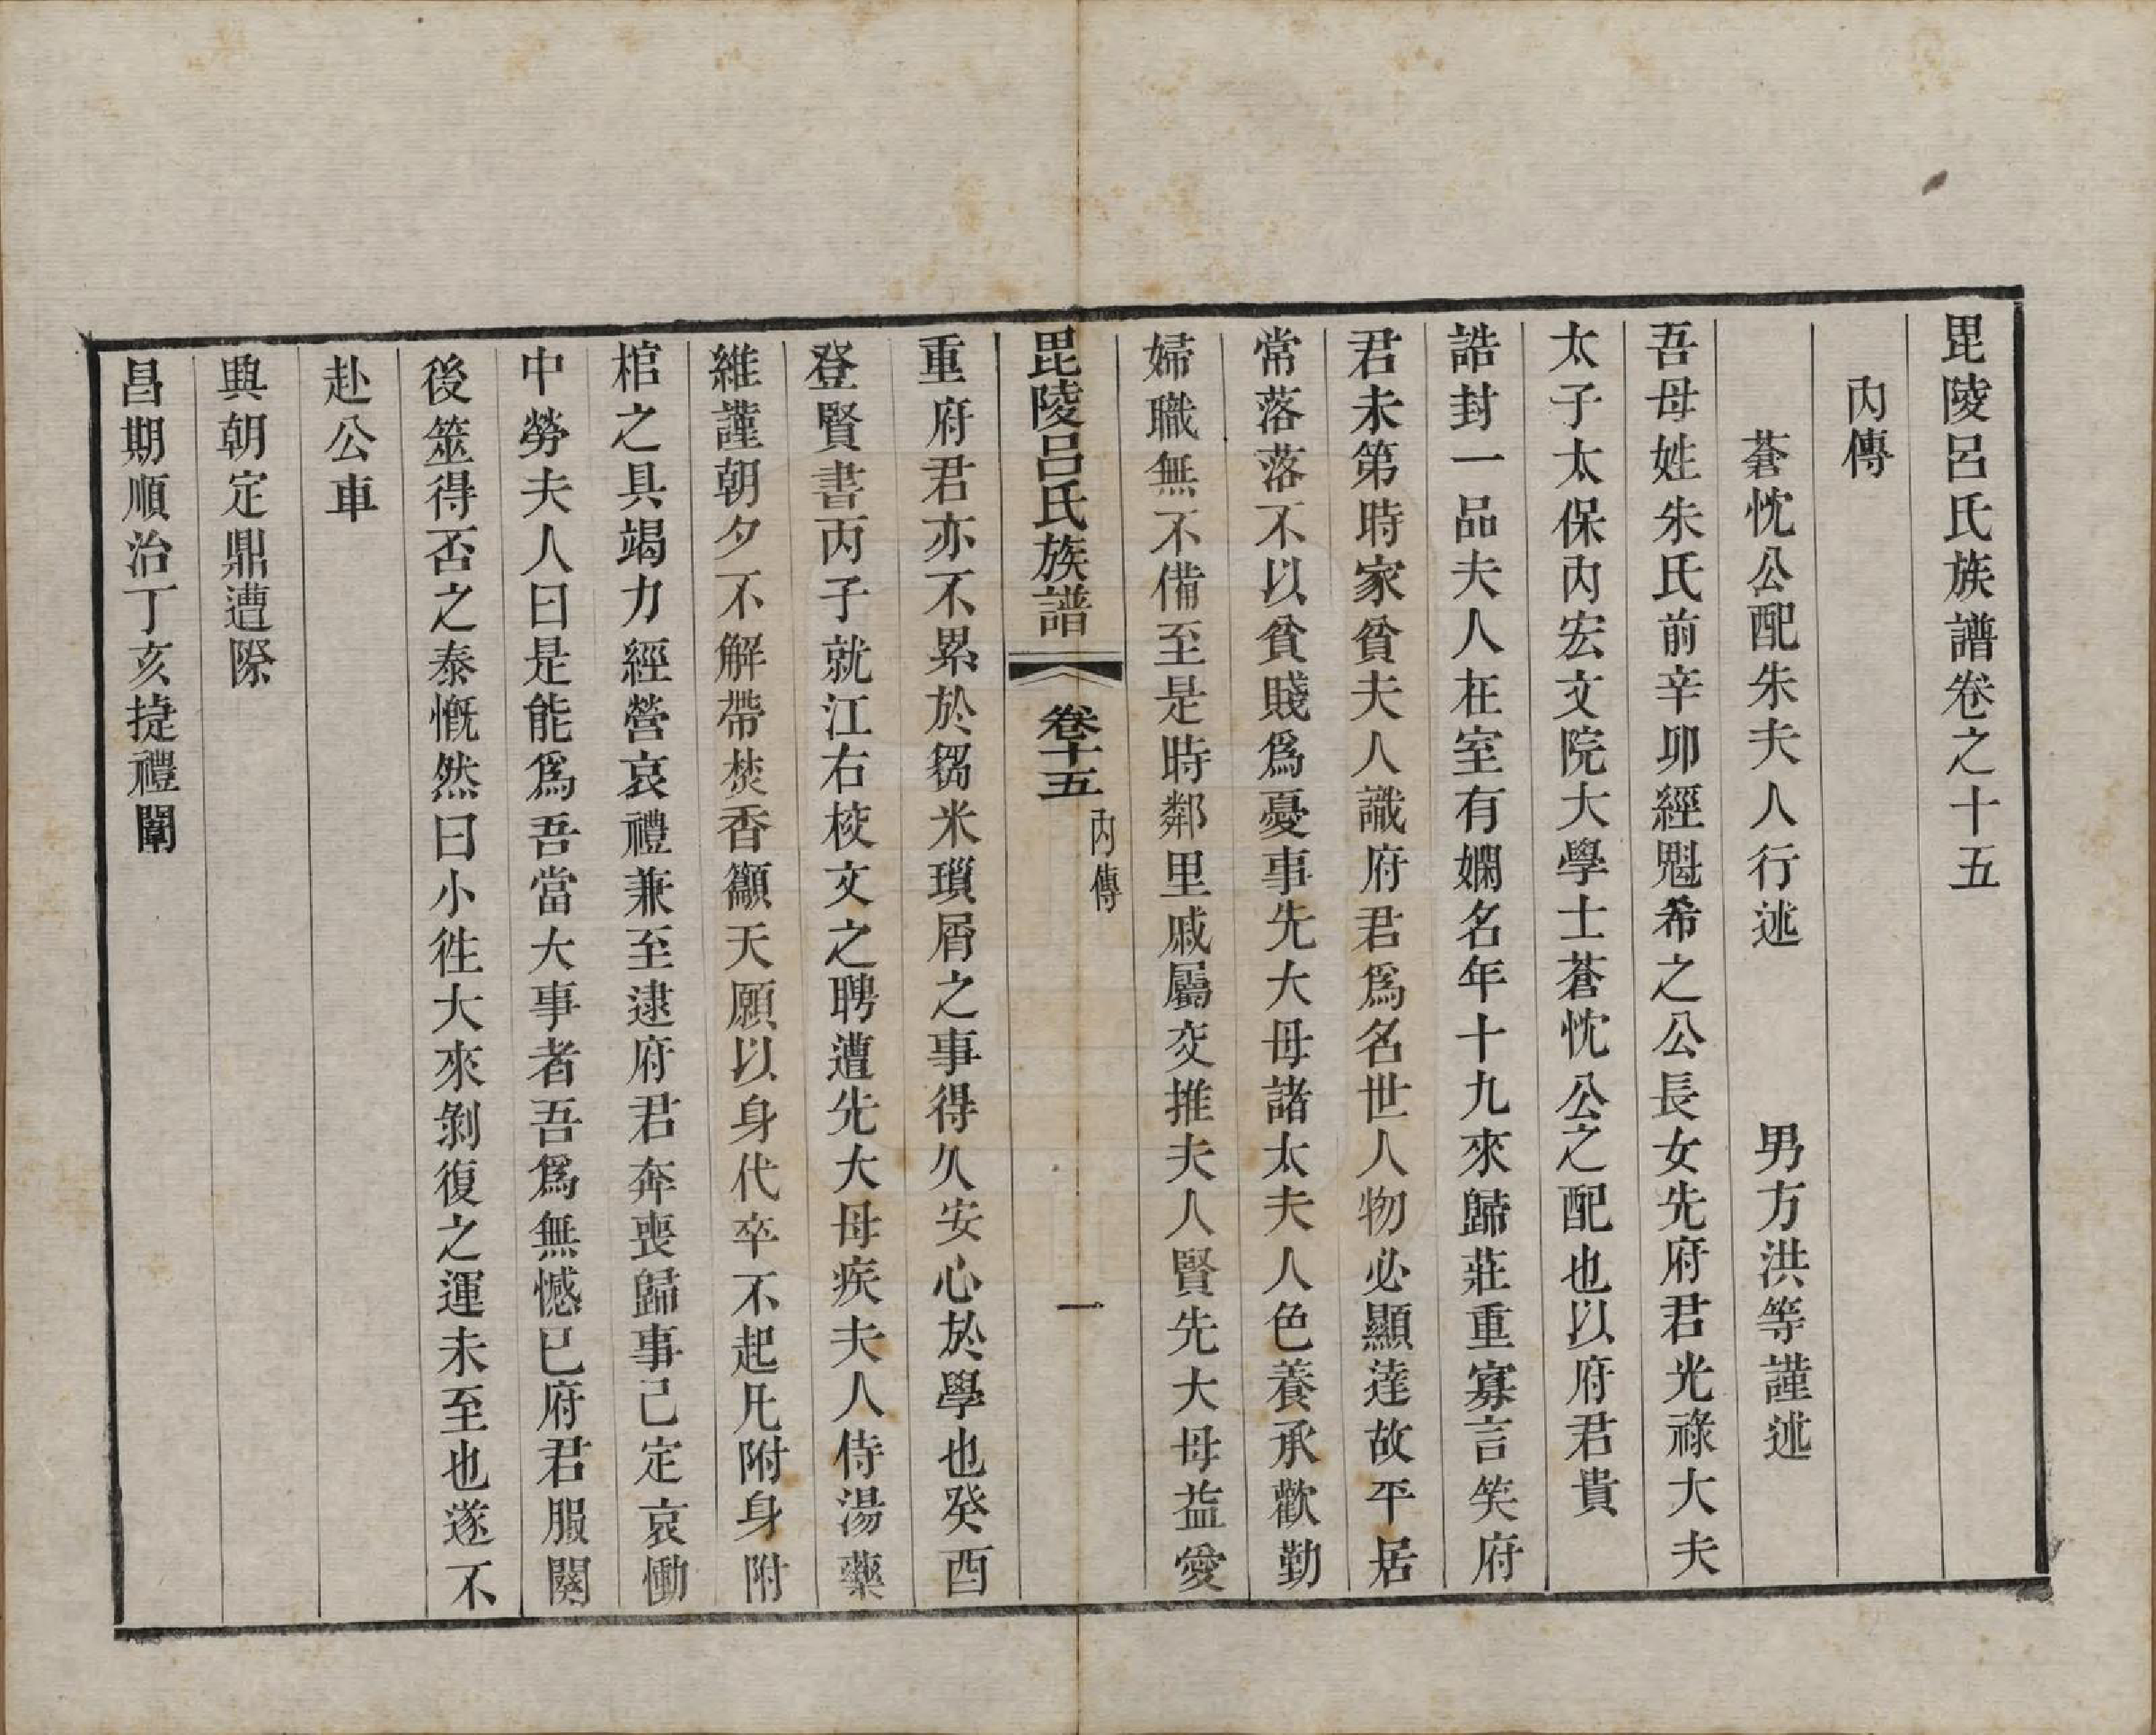 毘陵呂氏族譜卷之十五
內傳
蒼忱公配朱夫人行述 男方洪等謹述
吾母姓朱氏前辛卯經魁希之公長女先府君光祿大夫
太子太保內宏文院大學士蒼忱公之配也以府君貴
誥封一品夫人在室有嫻名年十九來歸莊重寡言笑府
君未第時家貧夫人識府君為名世人物必顯達故平居
常落落不以貧賤為憂事先大母諸太夫人色養承歡勤
婦職無不備至是時鄰里戚屬交推夫人賢先大母益愛
毘陵呂氏族譜 卷十五 內傳 一
重府君亦不累於芻米瑣屑之事得久安心於學也癸酉
登賢書丙子就江右校文之聘遭先大母疾夫人侍湯藥
維謹朝夕不解帶焚香籲天願以身代卒不起凡附身附
棺之具竭力經營哀禮兼至逮府君奔喪歸事己定哀慟
中勞夫人曰是能為吾當大事者吾為無憾已府君服闋
後筮得否之泰慨然曰小徃大來剝復之運未至也遂不
赴公車
興朝定鼎遭際
昌期順治丁亥捷禮闈